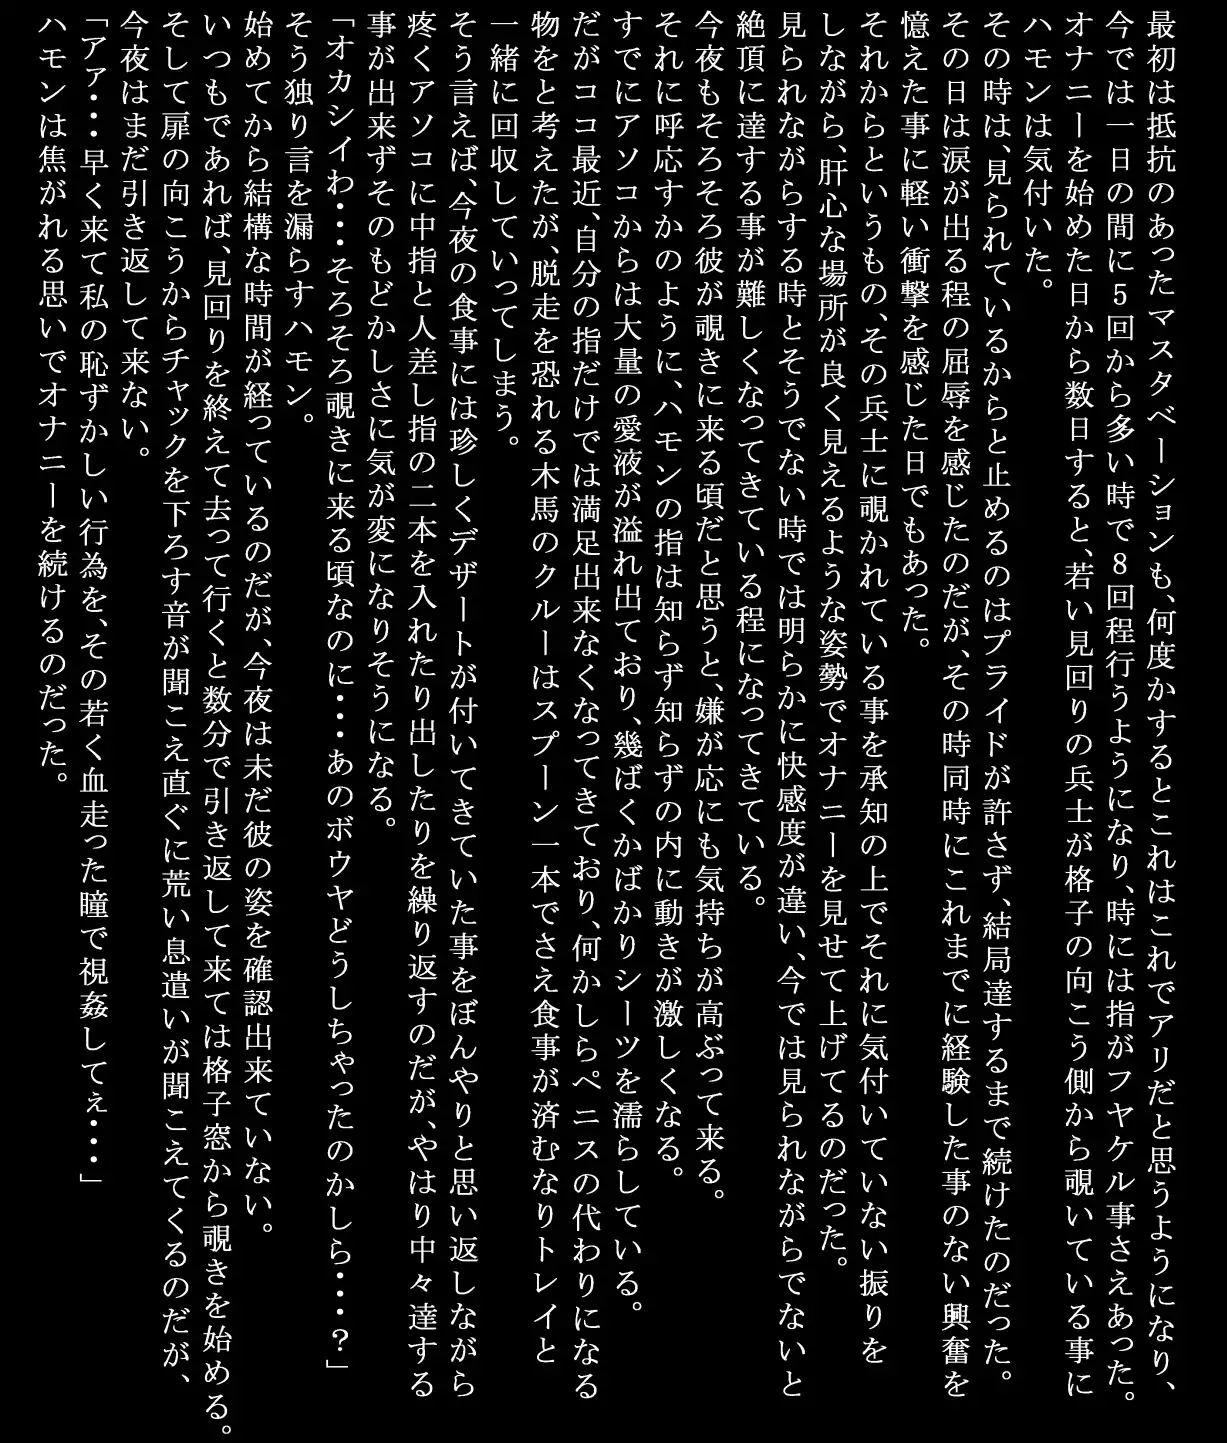 最初は抵抗のあったマスタベーションも、何度かするとこれはこれでアリだと思うようになり、
今では一日の間に5回から多い時で8回程行うようになり、時には指がフヤケル事さえあった。
オナニーを始めた日から数日すると、若い見回りの兵士が格子の向こう側から覗いている事に
ハモンは気付いた。
その時は、見られているからと止めるのはプライドが許さず、結局達するまで続けたのだった。
その日は涙が出る程の屈辱を感じたのだが、その時同時にこれまでに経験した事のない興奮を
憶えた事に軽い衝撃を感じた日でもあった。
それからというもの、その兵士に覗かれている事を承知の上でそれに気付いていない振りを
しながら、肝心な場所が良く見えるような姿勢でオナニーを見せて上げてるのだった。
見られながらする時とそうでない時では明らかに快感度が違い、今では見られながらでないと
絶頂に達する事が難しくなってきている程になってきている。
今夜もそろそろ彼が覗きに来る頃だと思うと、嫌が応にも気持ちが高ぶって来る。
それに呼応すかのように、ハモンの指は知らず知らずの内に動きが激しくなる。
すでにアソコからは大量の愛液が溢れ出ており、幾ばくかばかりシーツを濡らしている。
だがココ最近、自分の指だけでは満足出来なくなってきており、何かしらペニスの代わりになる
物をと考えたが、脱走を恐れる木馬のクルーはスプーン一本でさえ食事が済むなりトレイと
一緒に回収していってしまう。
そう言えば、今夜の食事には珍しくデザートが付いてきていた事をぼんやりと思い返しながら
疼くアソコに中指と人差し指の二本を入れたり出したりを繰り返すのだが、やはり中々達する
事が出来ずそのもどかしさに気が変になりそうになる。
「オカシイわ・・・そろそろ覗きに来る頃なのに・・・あのボウヤどうしちゃったのかしら・・・？」
そう独り言を漏らすハモン。
始めてから結構な時間が経っているのだが、今夜は未だ彼の姿を確認出来ていない。
いつもであれば、見回りを終えて去って行くと数分で引き返して来ては格子窓から覗きを始める。
そして扉の向こうからチャックを下ろす音が聞こえ直ぐに荒い息遣いが聞こえてくるのだが、
今夜はまだ引き返して来ない。
「アァ・・・早く来て私の恥ずかしい行為を、その若く血走った瞳で視姦してぇ・・・」
ハモンは焦がれる思いでオナニーを続けるのだった。